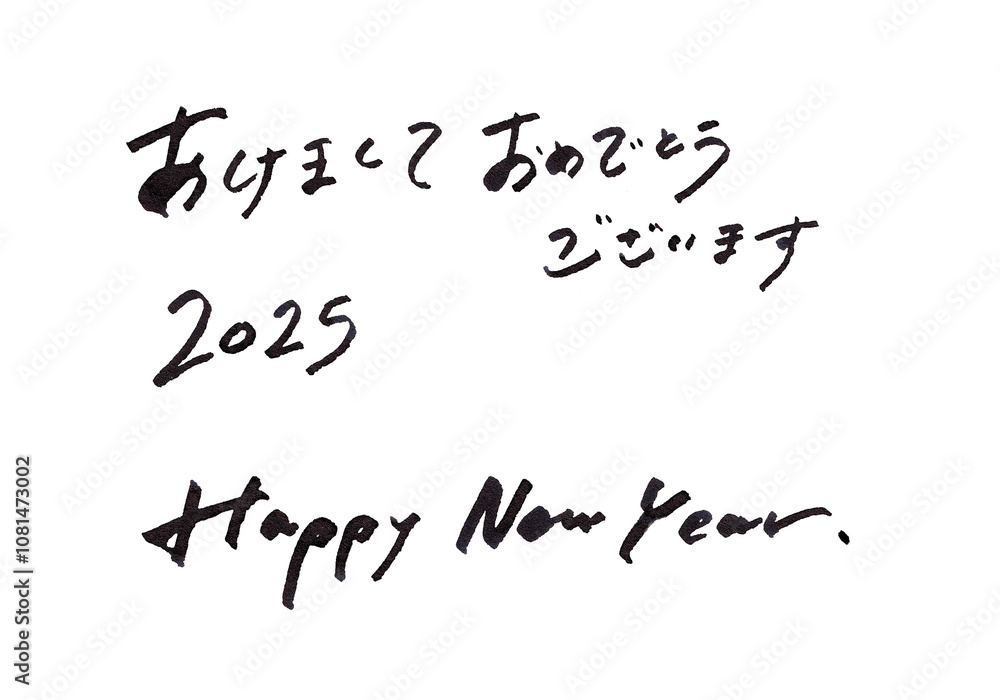 あけまして おめでとう
ございます
2025
Happy New Year.
Adobe Stock | #1081473002